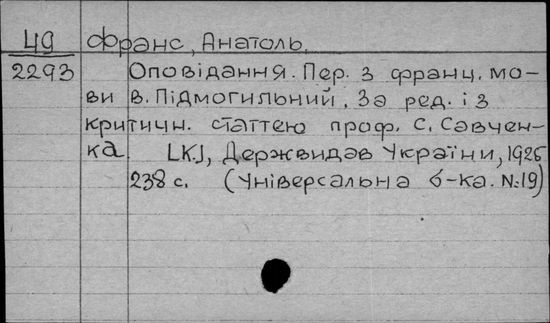 49 Франс, Анатоль.
2293 Оповідання. Пер. з франц. мо-
ви В. Підмогильний, За ред. і з
критичн. статтею проф. С. Савчен-
ка. [К.], Держвидав України, 1925
238 с. (Універсальна б-ка. №19)